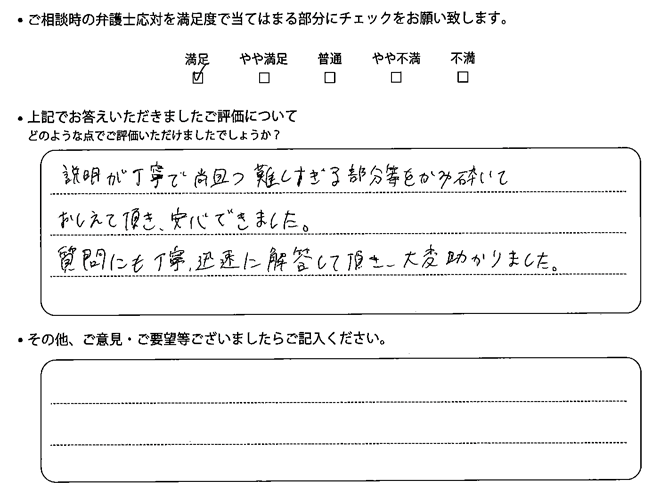 • ご相談時の弁護士応対を満足度で当てはまる部分にチェックをお願い致します。
満足 やや満足 普通 やや不満 不満
☑ ☐ ☐ ☐ ☐
• 上記でお答えいただきましたご評価について
どのような点でご評価いただけましたでしょうか？
説明が丁寧で尚且つ難しすぎる部分等をかみ砕いて
おしえて頂き、安心できました。
質問にも丁寧、迅速に解答して頂き、大変助かりました。
• その他、ご意見・ご要望等ございましたらご記入ください。